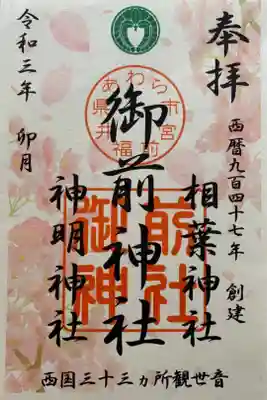 奉拝
西暦九百四十七年 創建
相葉神社
御前神社
神明神社
令和三年 卯月
あわら市宮前
福井県
御前神社
西国三十三ヵ所観世音